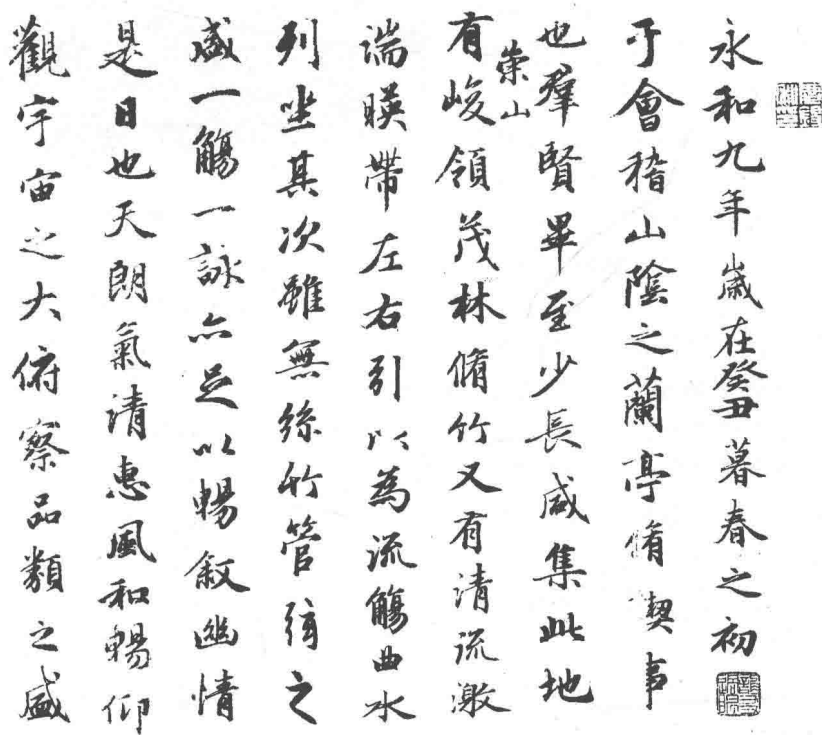 永和九年歲在癸丑暮春之初
于會稽山陰之蘭亭脩禊事
也羣賢畢至少長咸集此地
有崇山峻領茂林脩竹又有清流激
湍暎帶左右引以為流觴曲水
列坐其次雖無絲竹管弦之
盛一觴一詠亦足以暢敘幽情
是日也天朗氣清惠風和暢仰
觀宇宙之大俯察品類之盛